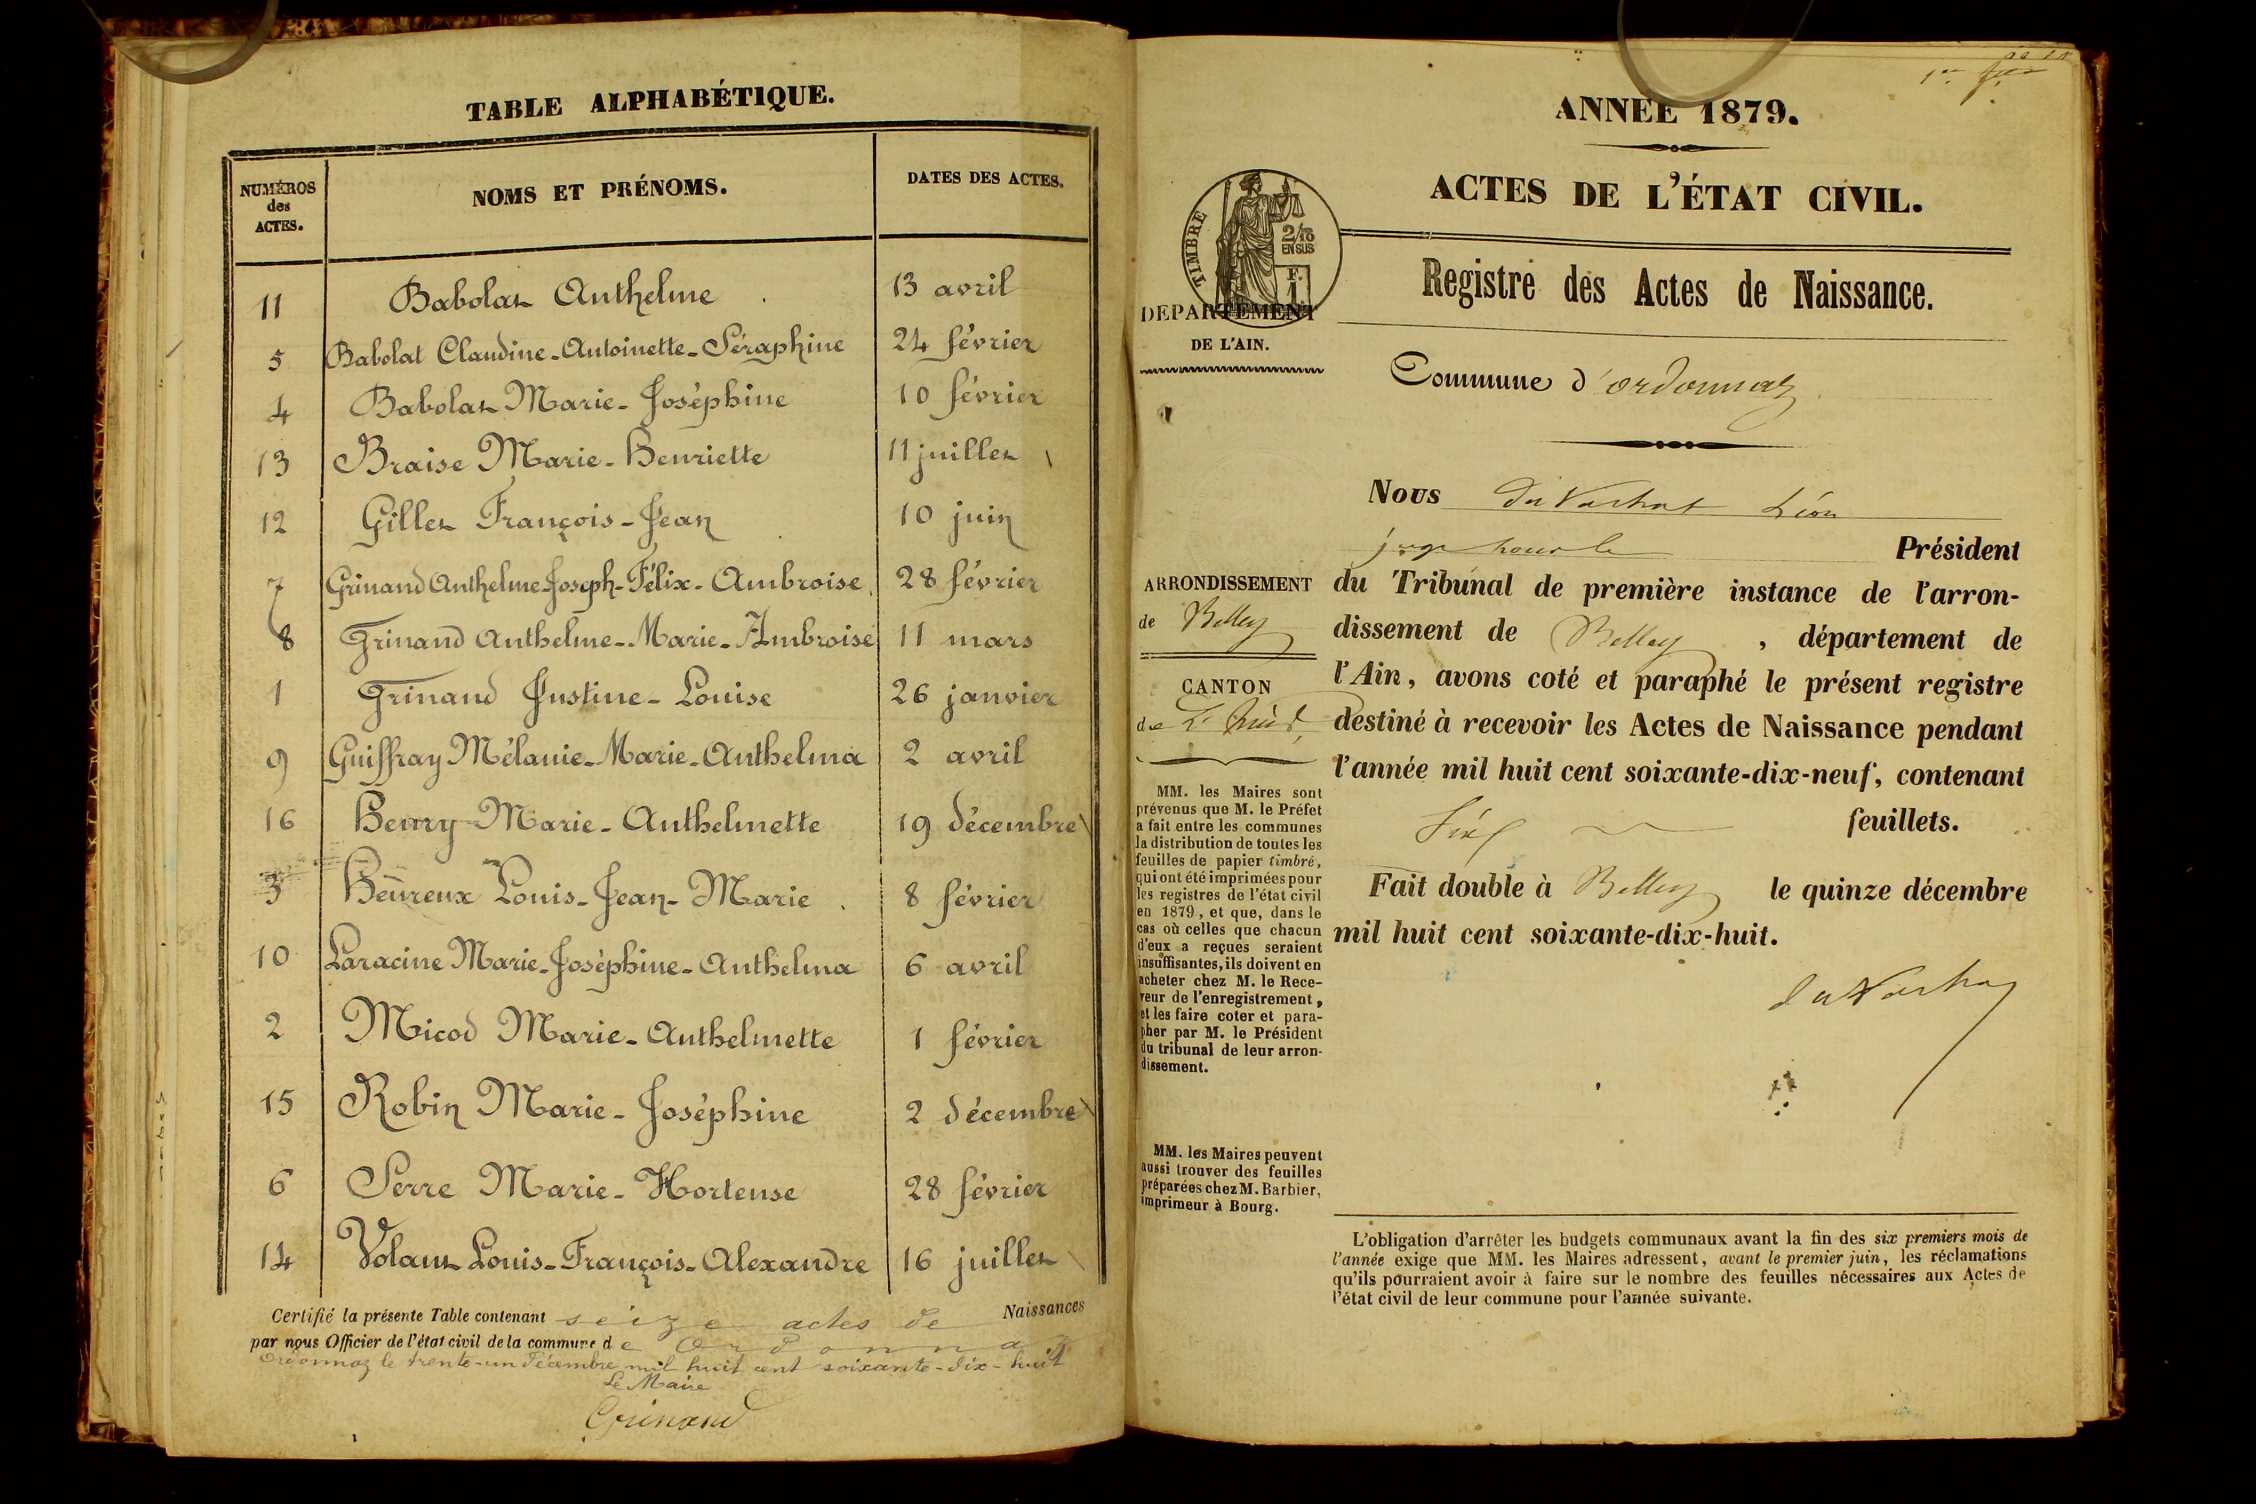 TABLE ALPHABÉTIQUE.
NUMÉROS des ACTES.
NOMS ET PRÉNOMS.
DATES DES ACTES.
11 Babolat Anthelme 13 avril
5 Babolat Claudine-Antoinette-Séraphine 24 février
4 Babolat Marie-Joséphine 10 février
13 Braise Marie-Henriette 11 juillet
12 Gillet François-Jean 10 juin
7 Grinand Anthelme-Joseph-Félix-Ambroise 28 février
8 Grinand Anthelme-Marie-Ambroise 11 mars
1 Grinand Justine-Louise 26 janvier
9 Guiffray Mélanie-Marie-Anthelma 2 avril
16 Henry Marie-Anthelmette 19 décembre
3 Heureux Louis-Jean-Marie 8 février
10 Laracine Marie-Joséphine-Anthelma 6 avril
2 Micod Marie-Anthelmette 1 février
15 Robin Marie-Joséphine 2 décembre
6 Serre Marie-Hortense 28 février
14 Volant Louis-François-Alexandre 16 juillet
Certifié la présente Table contenant seize actes de Naissances
par nous Officier de l'état civil de la commune de Ordonnaz
Ordonnaz le trente-un décembre mil huit cent soixante-dix-huit
Le Maire
Grinand
ANNÉE 1879.
ACTES DE L'ÉTAT CIVIL.
TIMBRE
2/10
EN SUS
DÉPARTEMENT
DE L'AIN.
Registre des Actes de Naissance.
Commune d'ordonnaz
Nous du Vachat Léon
juge pour le Président
du Tribunal de première instance de l'arron-
dissement de Belley, département de
l'Ain, avons coté et paraphé le présent registre
destiné à recevoir les Actes de Naissance pendant
l'année mil huit cent soixante-dix-neuf, contenant
feuillets.
Fait double à Belley le quinze décembre
mil huit cent soixante-dix-huit.
du Vachat
ARRONDISSEMENT
de Belley
CANTON
de
MM. les Maires sont
prévenus que M. le Préfet
a fait entre les communes
la distribution de toutes les
feuilles de papier timbré,
qui ont été imprimées pour
les registres de l'état civil
en 1879, et que, dans le
cas où celles que chacun
d'eux a reçues seraient
insuffisantes, ils doivent en
acheter chez M. le Rece-
veur de l'enregistrement,
et les faire coter et para-
pher par M. le Président
du tribunal de leur arron-
dissement.
MM. les Maires peuvent
aussi trouver des feuilles
préparées chez M. Barbier,
imprimeur à Bourg.
L'obligation d'arrêter les budgets communaux avant la fin des six premiers mois de
l'année exige que MM. les Maires adressent, avant le premier juin, les réclamations
qu'ils pourraient avoir à faire sur le nombre des feuilles nécessaires aux Actes de
l'état civil de leur commune pour l'année suivante.